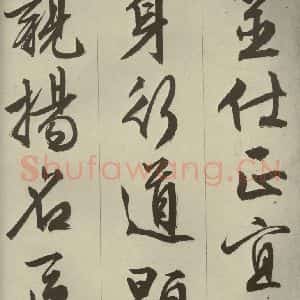 仕正宜
身行道顯
親揚名
Shufawang.CN